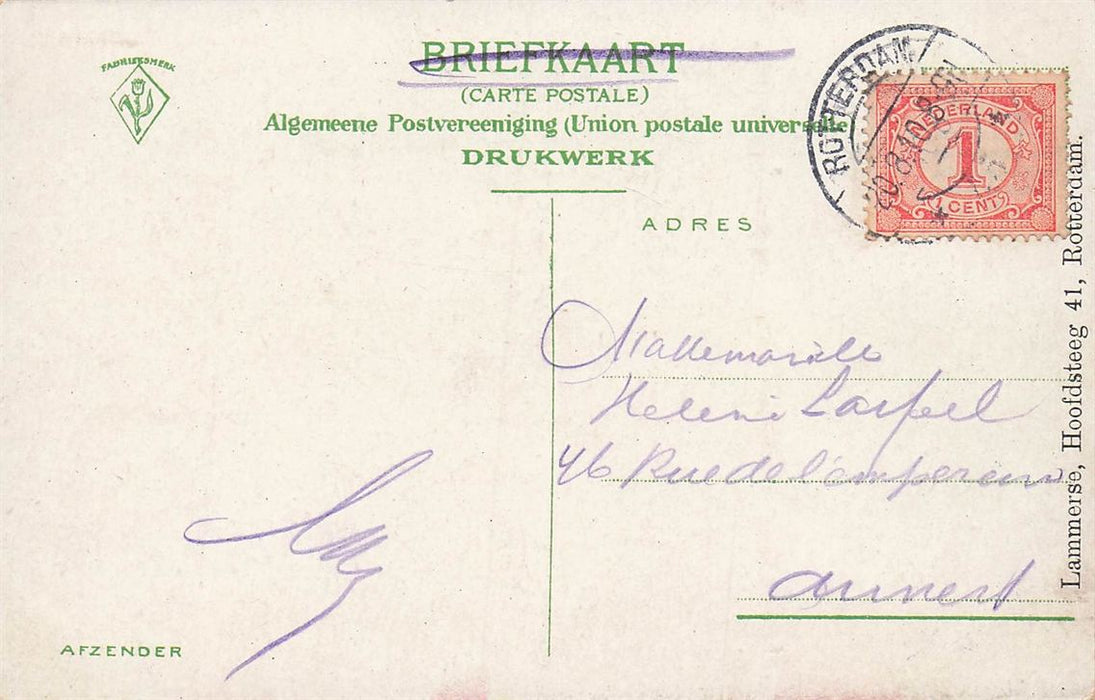 FABRIEKSMERK
BRIEFKAART
(CARTE POSTALE)
Algemeene Postvereeniging (Union postale universelle
DRUKWERK
ADRES
ROTTERDAM
NEDERLAND
1
CENT
Helene
46 Rue de l'empereur
anvers
AFZENDER
Lammerse, Hoofdsteeg 41, Rotterdam.